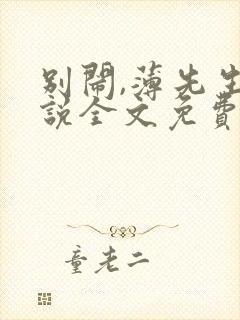 別鬧,薄先生
說全文免費
童老二